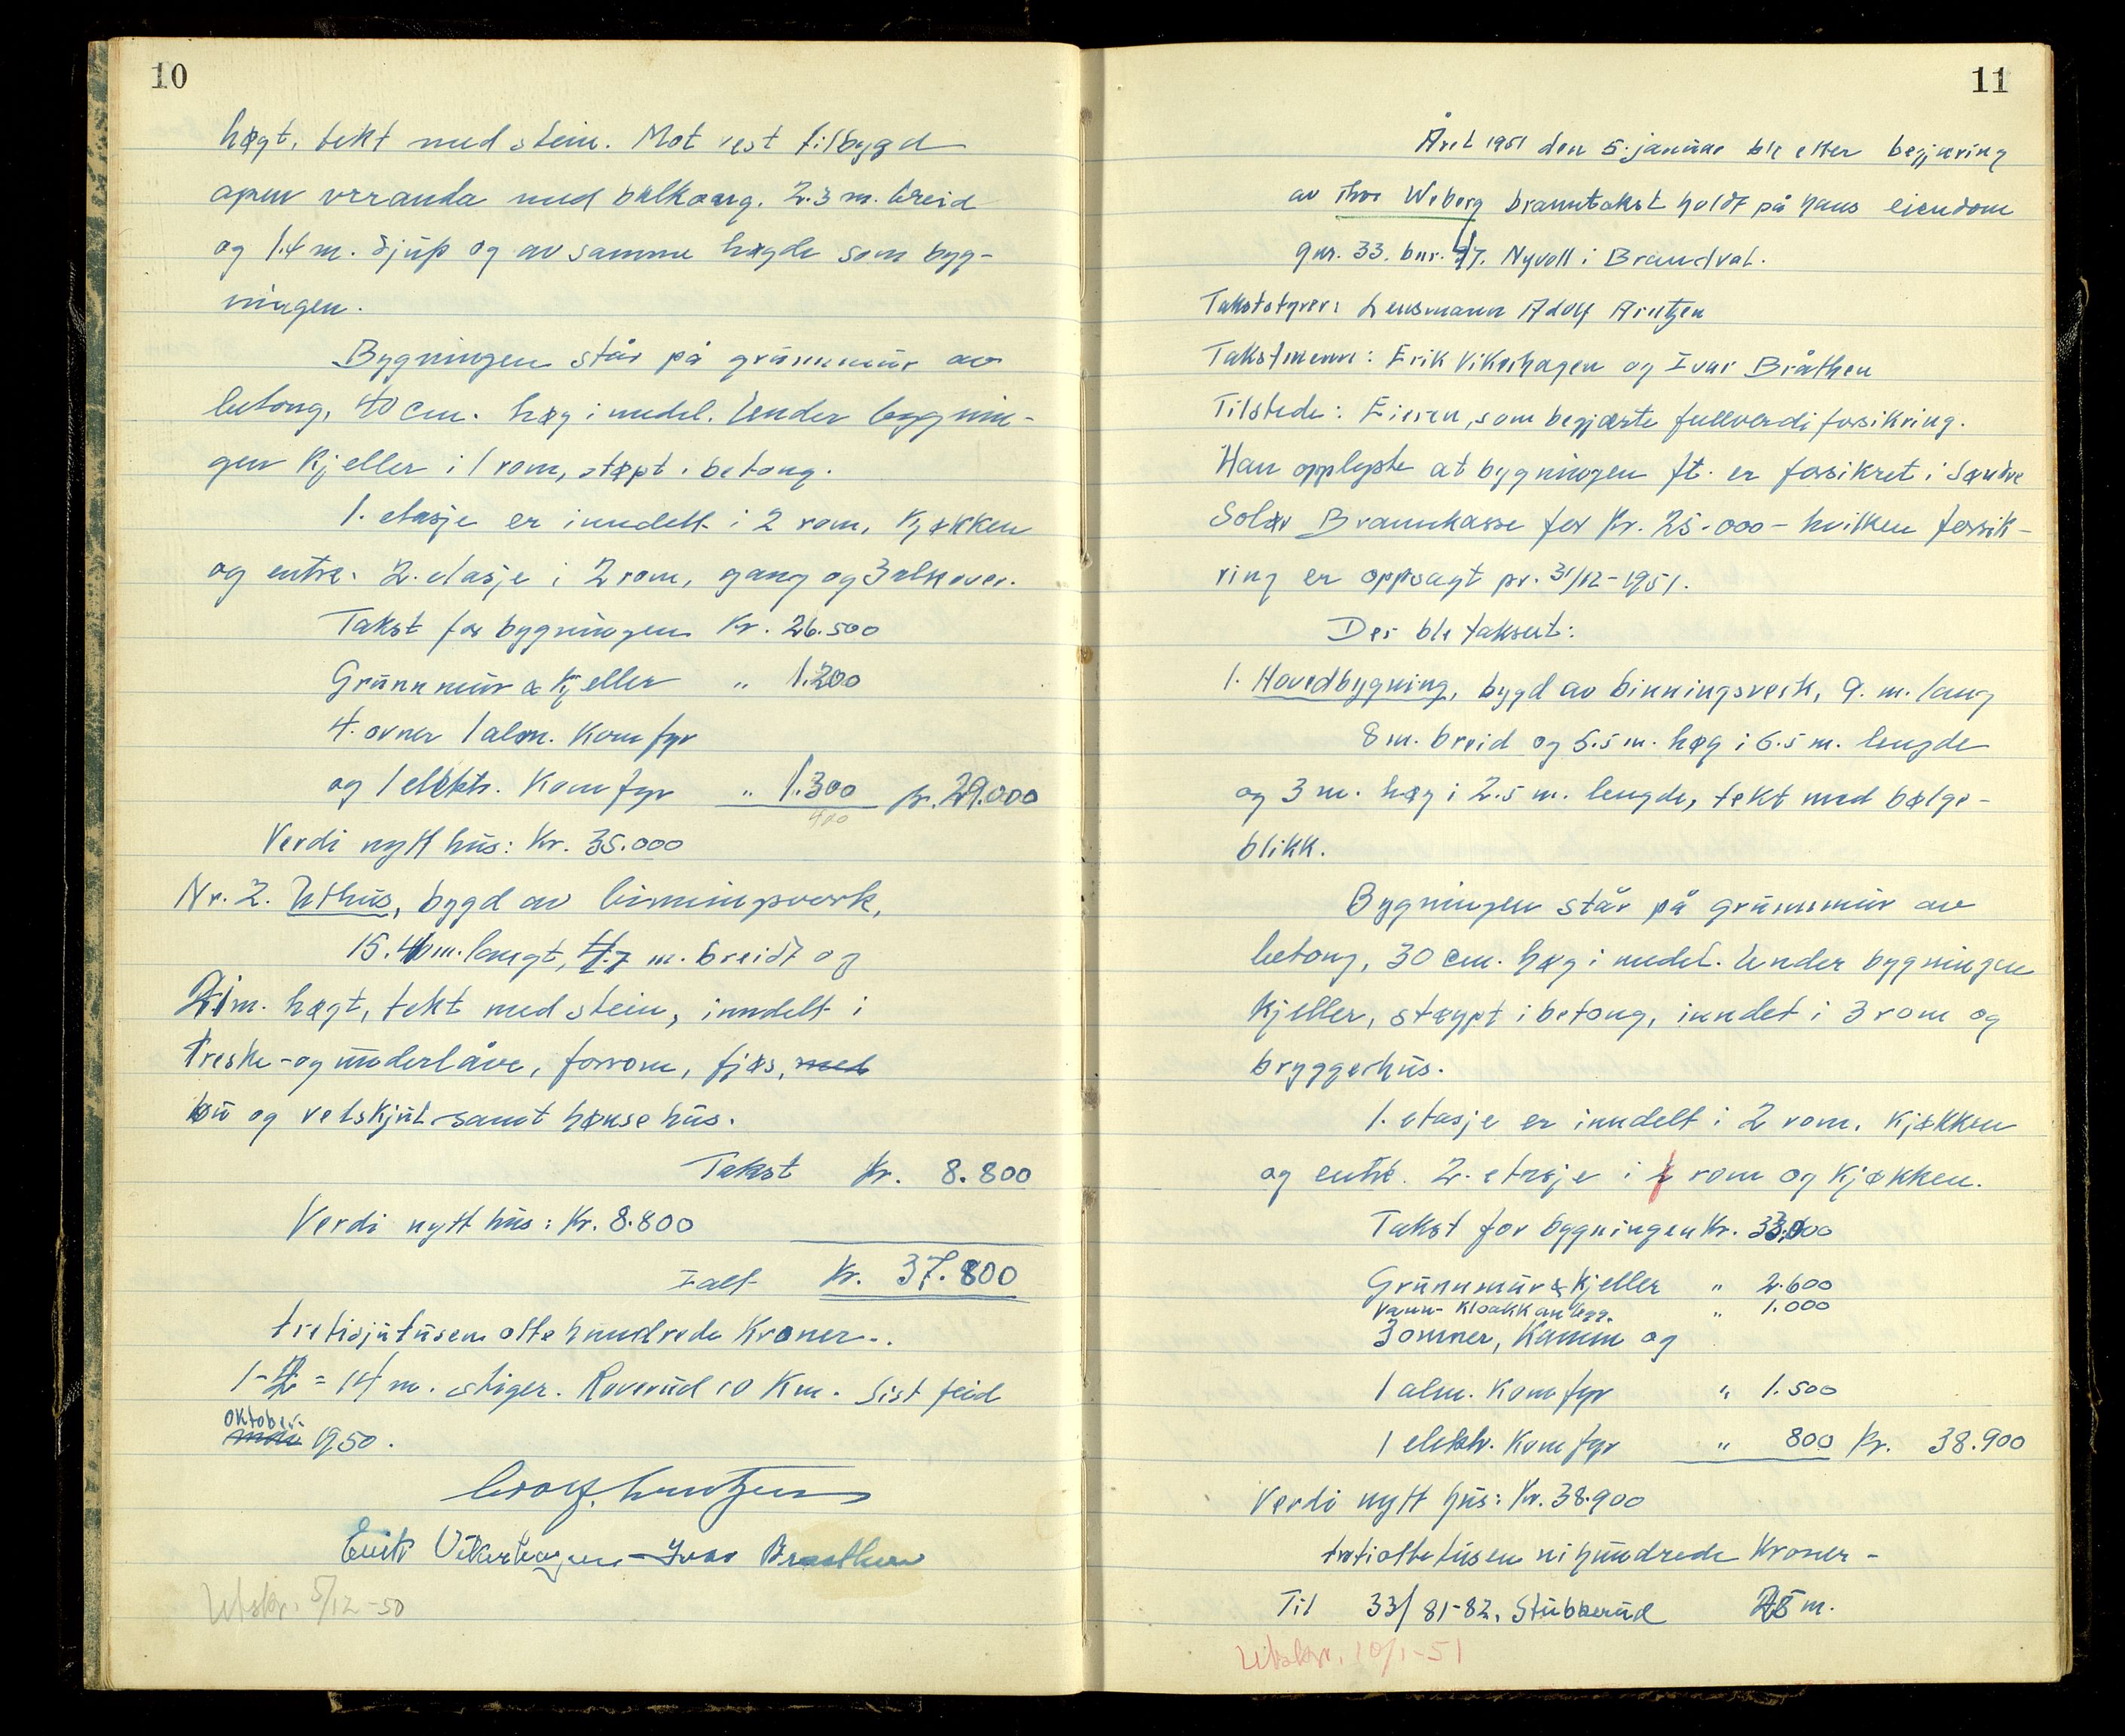 10
høgt, tekt med stein. Mot vest tilbygd
open veranda med balkong. 2.3 m. breid
og 1.4 m. djup og av samme høgde som byg-
ningen.
Bygningen står på grunnmur av
betong, 40 cm. høg i medel. Under bygnin-
gen kjeller i 1 rom, støpt i betong.
1. etasje er inndelt i 2 rom, kjøkken
og entre. 2. etasje i 2 rom, gang og 3 alkover.
Takst for bygningen Kr. 26.500
Grunnmur & kjeller " 1.200
4. ovner 1 alm. Komfyr
og 1 elektr. Komfyr " 1.300 Kr. 29.000
Verdi nytt hus: Kr. 35.000
Nr. 2. Uthus, bygd av binningsverk,
15.4 m. langt, 4.7 m. breidt og
m. høgt, tekt med stein, inndelt i
treske- og underlåve, forrom, fjøs, med
bu og vetskjul samt hønsehus.
Takst Kr. 8.800
Verdi nytt hus: Kr. 8.800
Ialt Kr. 37.800
trettisjutusen otte hundrede Kroner..
1-2 = 14 m. stiger. Roverud 10 Km. Sist feid
oktober
mai 1950.
Adolf Arntzen
Erik Vikerhagen - Ivar Braathen
Utskr. 5/12-50
11
Året 1951 den 5. januar ble etter begjæring
av Thor Weberg branntakst holdt på hans eiendom
gnr. 33. bnr. 97. Nyvoll i Brandval.
Takststyrer: Lensmann Adolf Arntzen
Takstmenn: Erik Vikerhagen og Ivar Bråthen
Tilstede: Eieren, som begjærte fullverdi forsikring.
Han opplyste at bygningen ft. er forsikret i Søndre
Solør Brannkasse for Kr. 25.000 - hvilken forsik-
ring er oppsagt pr. 31/12-1951.
Der ble taksert:
1. Hovedbygning, bygd av binningsverk, 9. m. lang
8 m. breid og 5.5 m. høg i 6.5 m. lengde
og 3 m. høg i 2.5 m. lengde, tekt med bølge-
blikk.
Bygningen står på grunnmur av
betong, 30 cm. høg i medel. Under bygningen
kjeller, støypt i betong, inndelt i 3 rom og
bryggerhus.
1. etasje er inndelt i 2 rom, kjøkken
og entré. 2. etasje i rom og kjøkken.
Takst for bygningen Kr. 33.000
Grunnmur & kjeller " 2.600
Vann- kloakkanlegg. " 1.000
3 omner, Kamin og
1 alm. Komfyr " 1.500
1 elektr. Komfyr " 800 Kr. 38.900
Verdi nytt hus: Kr. 38.900
trettiottetusen nihundrede Kroner -
Til 33/81-82, Stubberud 25 m.
Utskr. 10/1-51